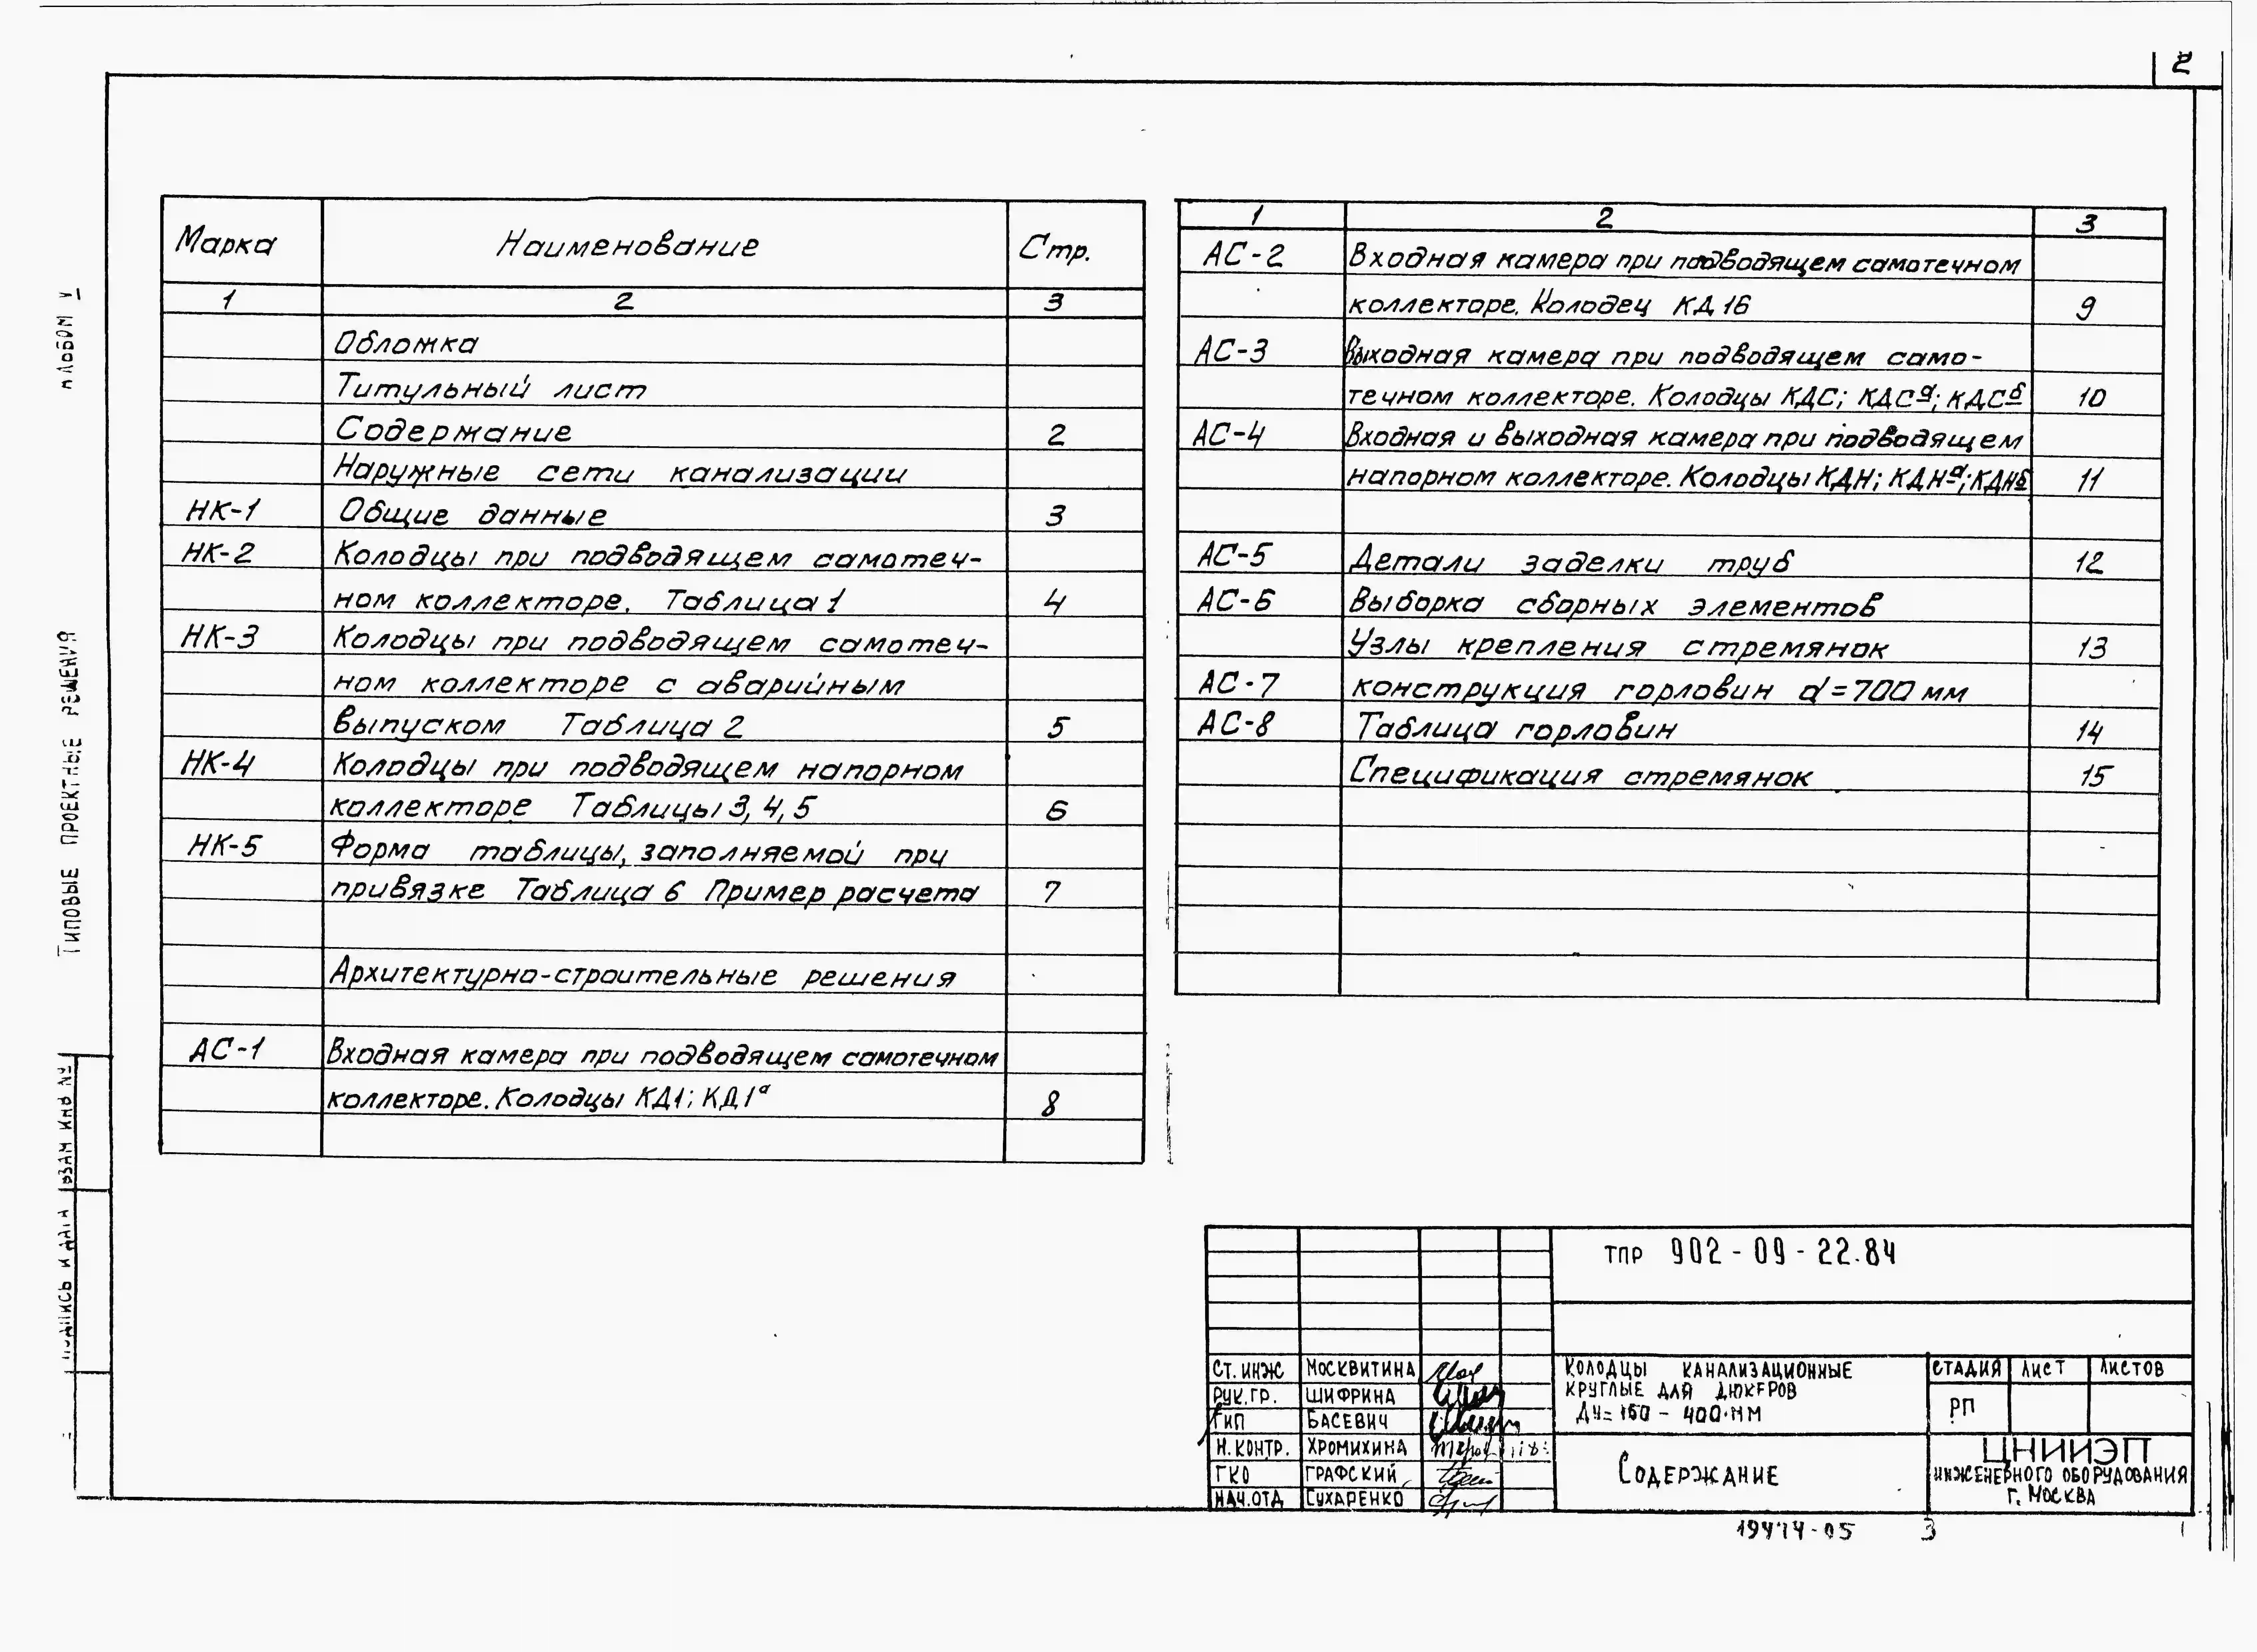 2
Альбом V
Типовые проектные решения
Взам инв №
Подпись и дата
Марка Наименование Стр.
1 2 3
Обложка
Титульный лист
Содержание 2
Наружные сети канализации
НК-1 Общие данные 3
НК-2 Колодцы при подводящем самотеч-
ном коллекторе. Таблица 1 4
НК-3 Колодцы при подводящем самотеч-
ном коллекторе с аварийным
выпуском Таблица 2 5
НК-4 Колодцы при подводящем напорном
коллекторе Таблицы 3, 4, 5 6
НК-5 Форма таблицы, заполняемой при
привязке Таблица 6 Пример расчета 7
Архитектурно-строительные решения
АС-1 Входная камера при подводящем самотечном
коллекторе. Колодцы КД1; КД1а 8
1 2 3
АС-2 Входная камера при подводящем самотечном
коллекторе. Колодец КД1б 9
АС-3 Выходная камера при подводящем само-
течном коллекторе. Колодцы КДС; КДСа; КДСб 10
АС-4 Входная и выходная камера при подводящем
напорном коллекторе. Колодцы КДН; КДНа; КДНб 11
АС-5 Детали заделки труб 12
АС-6 Выборка сборных элементов
Узлы крепления стремянок 13
АС-7 конструкция горловин d=700 мм
АС-8 Таблица горловин 14
Спецификация стремянок 15
ТПР 902-09-22.84
Ст. инж Москвитина
Рук. гр. Шифрина
Гип Басевич
Н. контр. Хромихина
ГКО Графский
Нач. отд Сухаренко
Колодцы канализационные
круглые для дюкеров
Ду=150-400 мм
Стадия Лист Листов
РП
Содержание
ЦНИИЭП
инженерного оборудования
г. Москва
19474-05 3